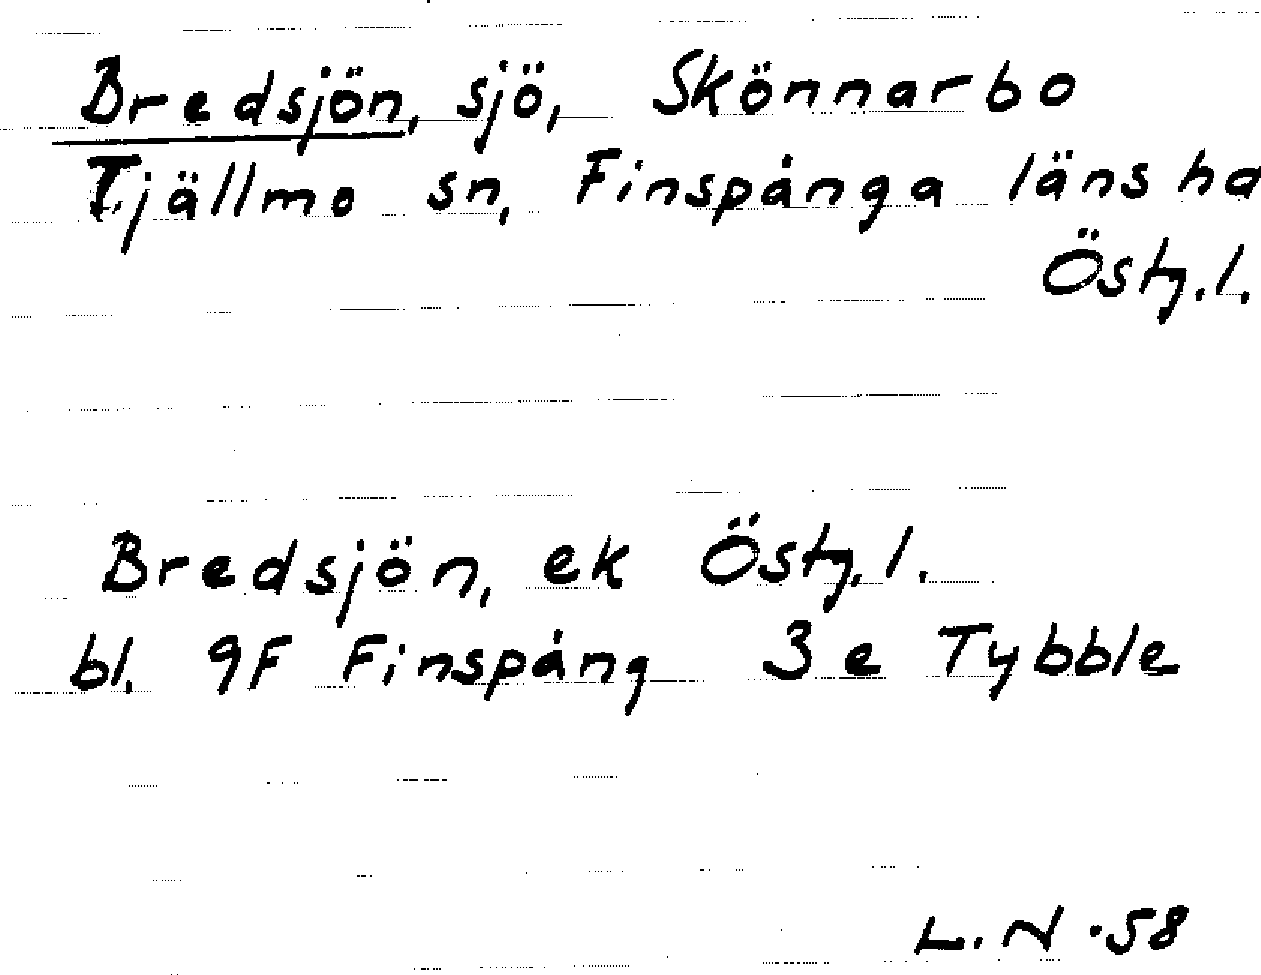 Bredsjön, sjö, Skönnarbo
Tjällmo sn, Finspånga läns hd
Östg.l.
Bredsjön, ek Östg.l.
bl. 9F Finspång 3e Tybble
L.N.58